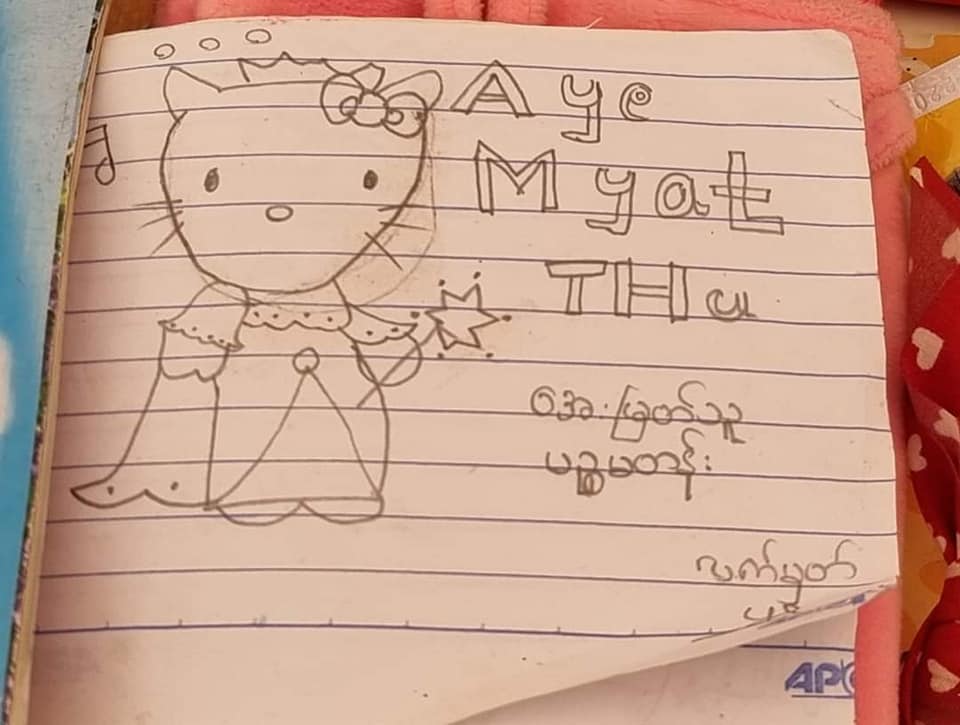 Aye
Myat
THu
အေးမြတ်သူ
ပဉ္စမတန်း
လက်မှတ်